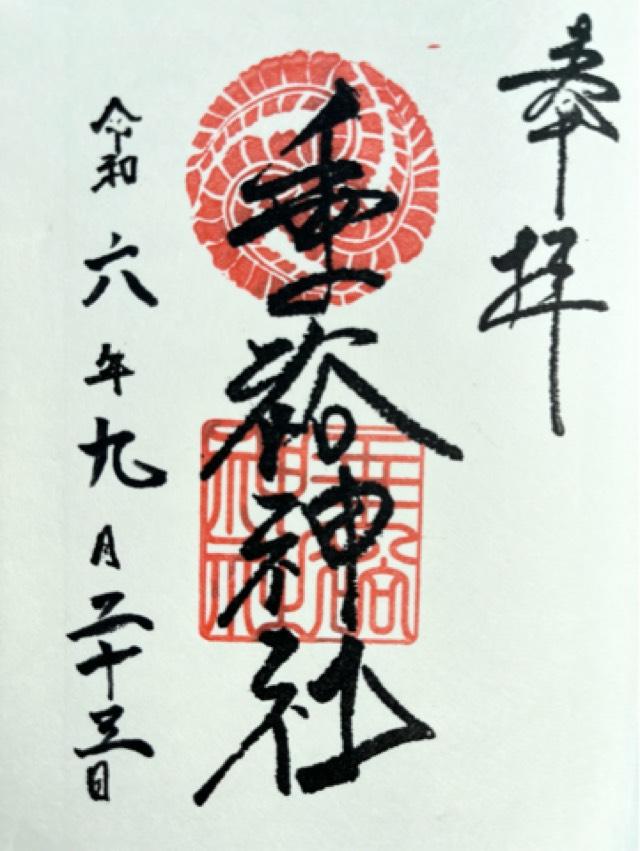 奉拝
垂裕神社
垂裕
神社
令和六年九月二十三日